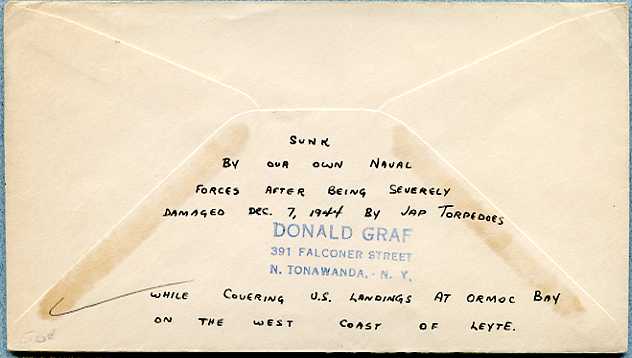 SUNK
BY OUR OWN NAVAL
FORCES AFTER BEING SEVERELY
DAMAGED DEC. 7, 1944 BY JAP TORPEDOES
DONALD GRAF
391 FALCONER STREET
N. TONAWANDA, - N. Y.
WHILE COVERING U.S. LANDINGS AT ORMOC BAY
ON THE WEST COAST OF LEYTE.